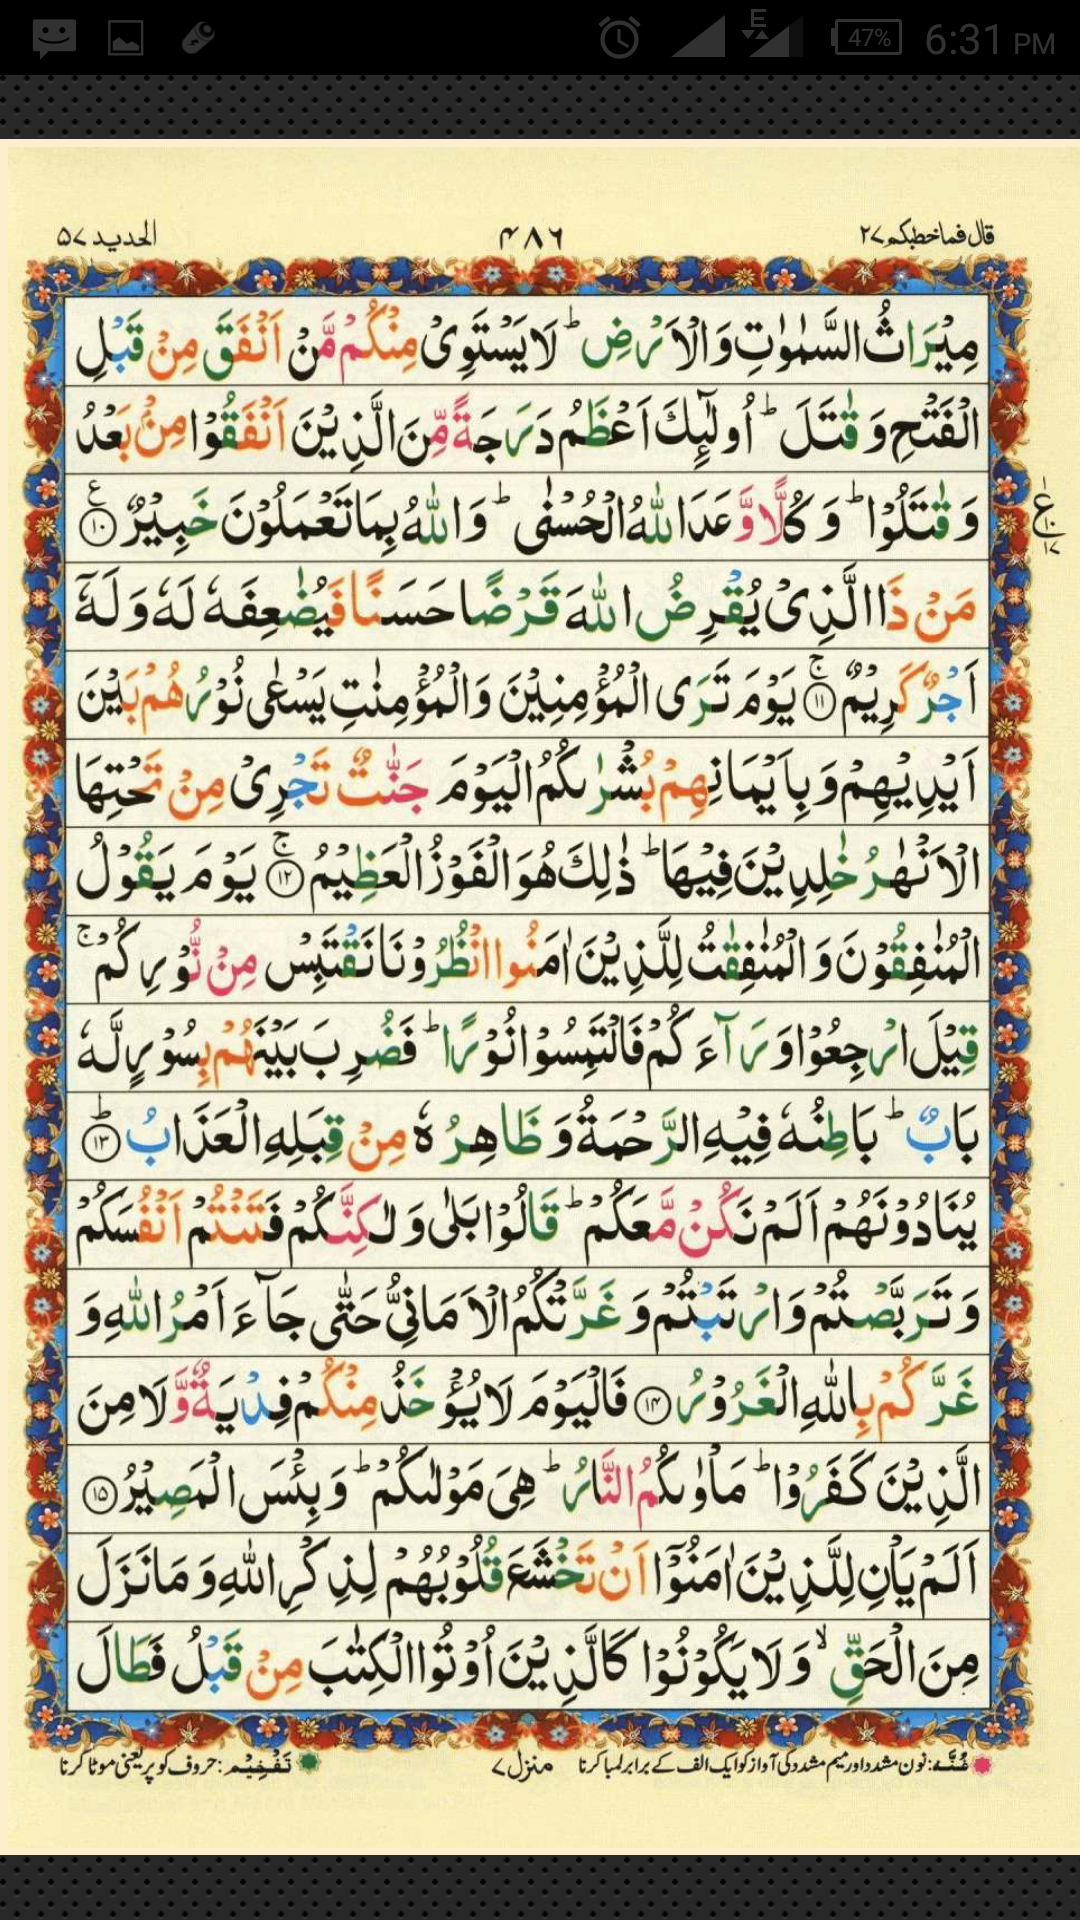 6:31 PM
47%
E
قال فما خطبكم ۲۷
۴۸۶
الحدید ۵۷
مِيْرَاثُ السَّمٰوٰتِ وَالْاَرْضِ ؕ لَا يَسْتَوِىْ مِنْكُمْ مَّنْ اَنْفَقَ مِنْ قَبْلِ
الْفَتْحِ وَ قٰتَلَ ؕ اُولٰٓئِكَ اَعْظَمُ دَرَجَةً مِّنَ الَّذِيْنَ اَنْفَقُوْا مِنْۢ بَعْدُ
وَ قٰتَلُوْا ؕ وَ كُلًّا وَّعَدَ اللّٰهُ الْحُسْنٰى ؕ وَ اللّٰهُ بِمَا تَعْمَلُوْنَ خَبِيْرٌ ۱۰ ع
ع ۱۰ ۱۷
مَنْ ذَا الَّذِىْ يُقْرِضُ اللّٰهَ قَرْضًا حَسَنًا فَيُضٰعِفَهٗ لَهٗ وَ لَهٗۤ
اَجْرٌ كَرِيْمٌ ۱۱ۚ يَوْمَ تَرَى الْمُؤْمِنِيْنَ وَالْمُؤْمِنٰتِ يَسْعٰى نُوْرُهُمْ بَيْنَ
اَيْدِيْهِمْ وَ بِاَيْمَانِهِمْ بُشْرٰىكُمُ الْيَوْمَ جَنّٰتٌ تَجْرِىْ مِنْ تَحْتِهَا
الْاَنْهٰرُ خٰلِدِيْنَ فِيْهَا ؕ ذٰلِكَ هُوَ الْفَوْزُ الْعَظِيْمُ ۱۲ۚ يَوْمَ يَقُوْلُ
الْمُنٰفِقُوْنَ وَ الْمُنٰفِقٰتُ لِلَّذِيْنَ اٰمَنُوا انْظُرُوْنَا نَقْتَبِسْ مِنْ نُّوْرِكُمْ ۚ
قِيْلَ ارْجِعُوْا وَرَآءَكُمْ فَالْتَمِسُوْا نُوْرًا ؕ فَضُرِبَ بَيْنَهُمْ بِسُوْرٍ لَّهٗ
بَابٌ ؕ بَاطِنُهٗ فِيْهِ الرَّحْمَةُ وَ ظَاهِرُهٗ مِنْ قِبَلِهِ الْعَذَابُ ۱۳ؕ
يُنَادُوْنَهُمْ اَلَمْ نَكُنْ مَّعَكُمْ ؕ قَالُوْا بَلٰى وَ لٰكِنَّكُمْ فَتَنْتُمْ اَنْفُسَكُمْ
وَ تَرَبَّصْتُمْ وَ ارْتَبْتُمْ وَ غَرَّتْكُمُ الْاَمَانِىُّ حَتّٰى جَآءَ اَمْرُ اللّٰهِ وَ
غَرَّكُمْ بِاللّٰهِ الْغَرُوْرُ ۱۴ فَالْيَوْمَ لَا يُؤْخَذُ مِنْكُمْ فِدْيَةٌ وَّ لَا مِنَ
الَّذِيْنَ كَفَرُوْا ؕ مَاْوٰىكُمُ النَّارُ ؕ هِىَ مَوْلٰىكُمْ ؕ وَ بِئْسَ الْمَصِيْرُ ۱۵
اَلَمْ يَاْنِ لِلَّذِيْنَ اٰمَنُوْۤا اَنْ تَخْشَعَ قُلُوْبُهُمْ لِذِكْرِ اللّٰهِ وَ مَا نَزَلَ
مِنَ الْحَقِّ ۙ وَ لَا يَكُوْنُوْا كَالَّذِيْنَ اُوْتُوا الْكِتٰبَ مِنْ قَبْلُ فَطَالَ
غُنَّه: نون مشدد اور میم مشدد کی آواز کو ایک الف کے برابر لمبا کرنا
منزل ۷
تَفْخِيْم: حروف کو پر یعنی موٹا کرنا